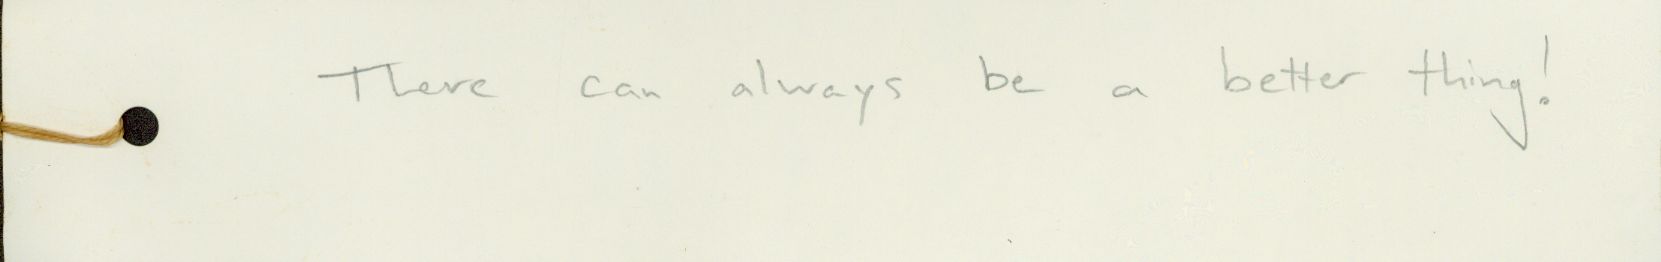 There can always be a better thing!